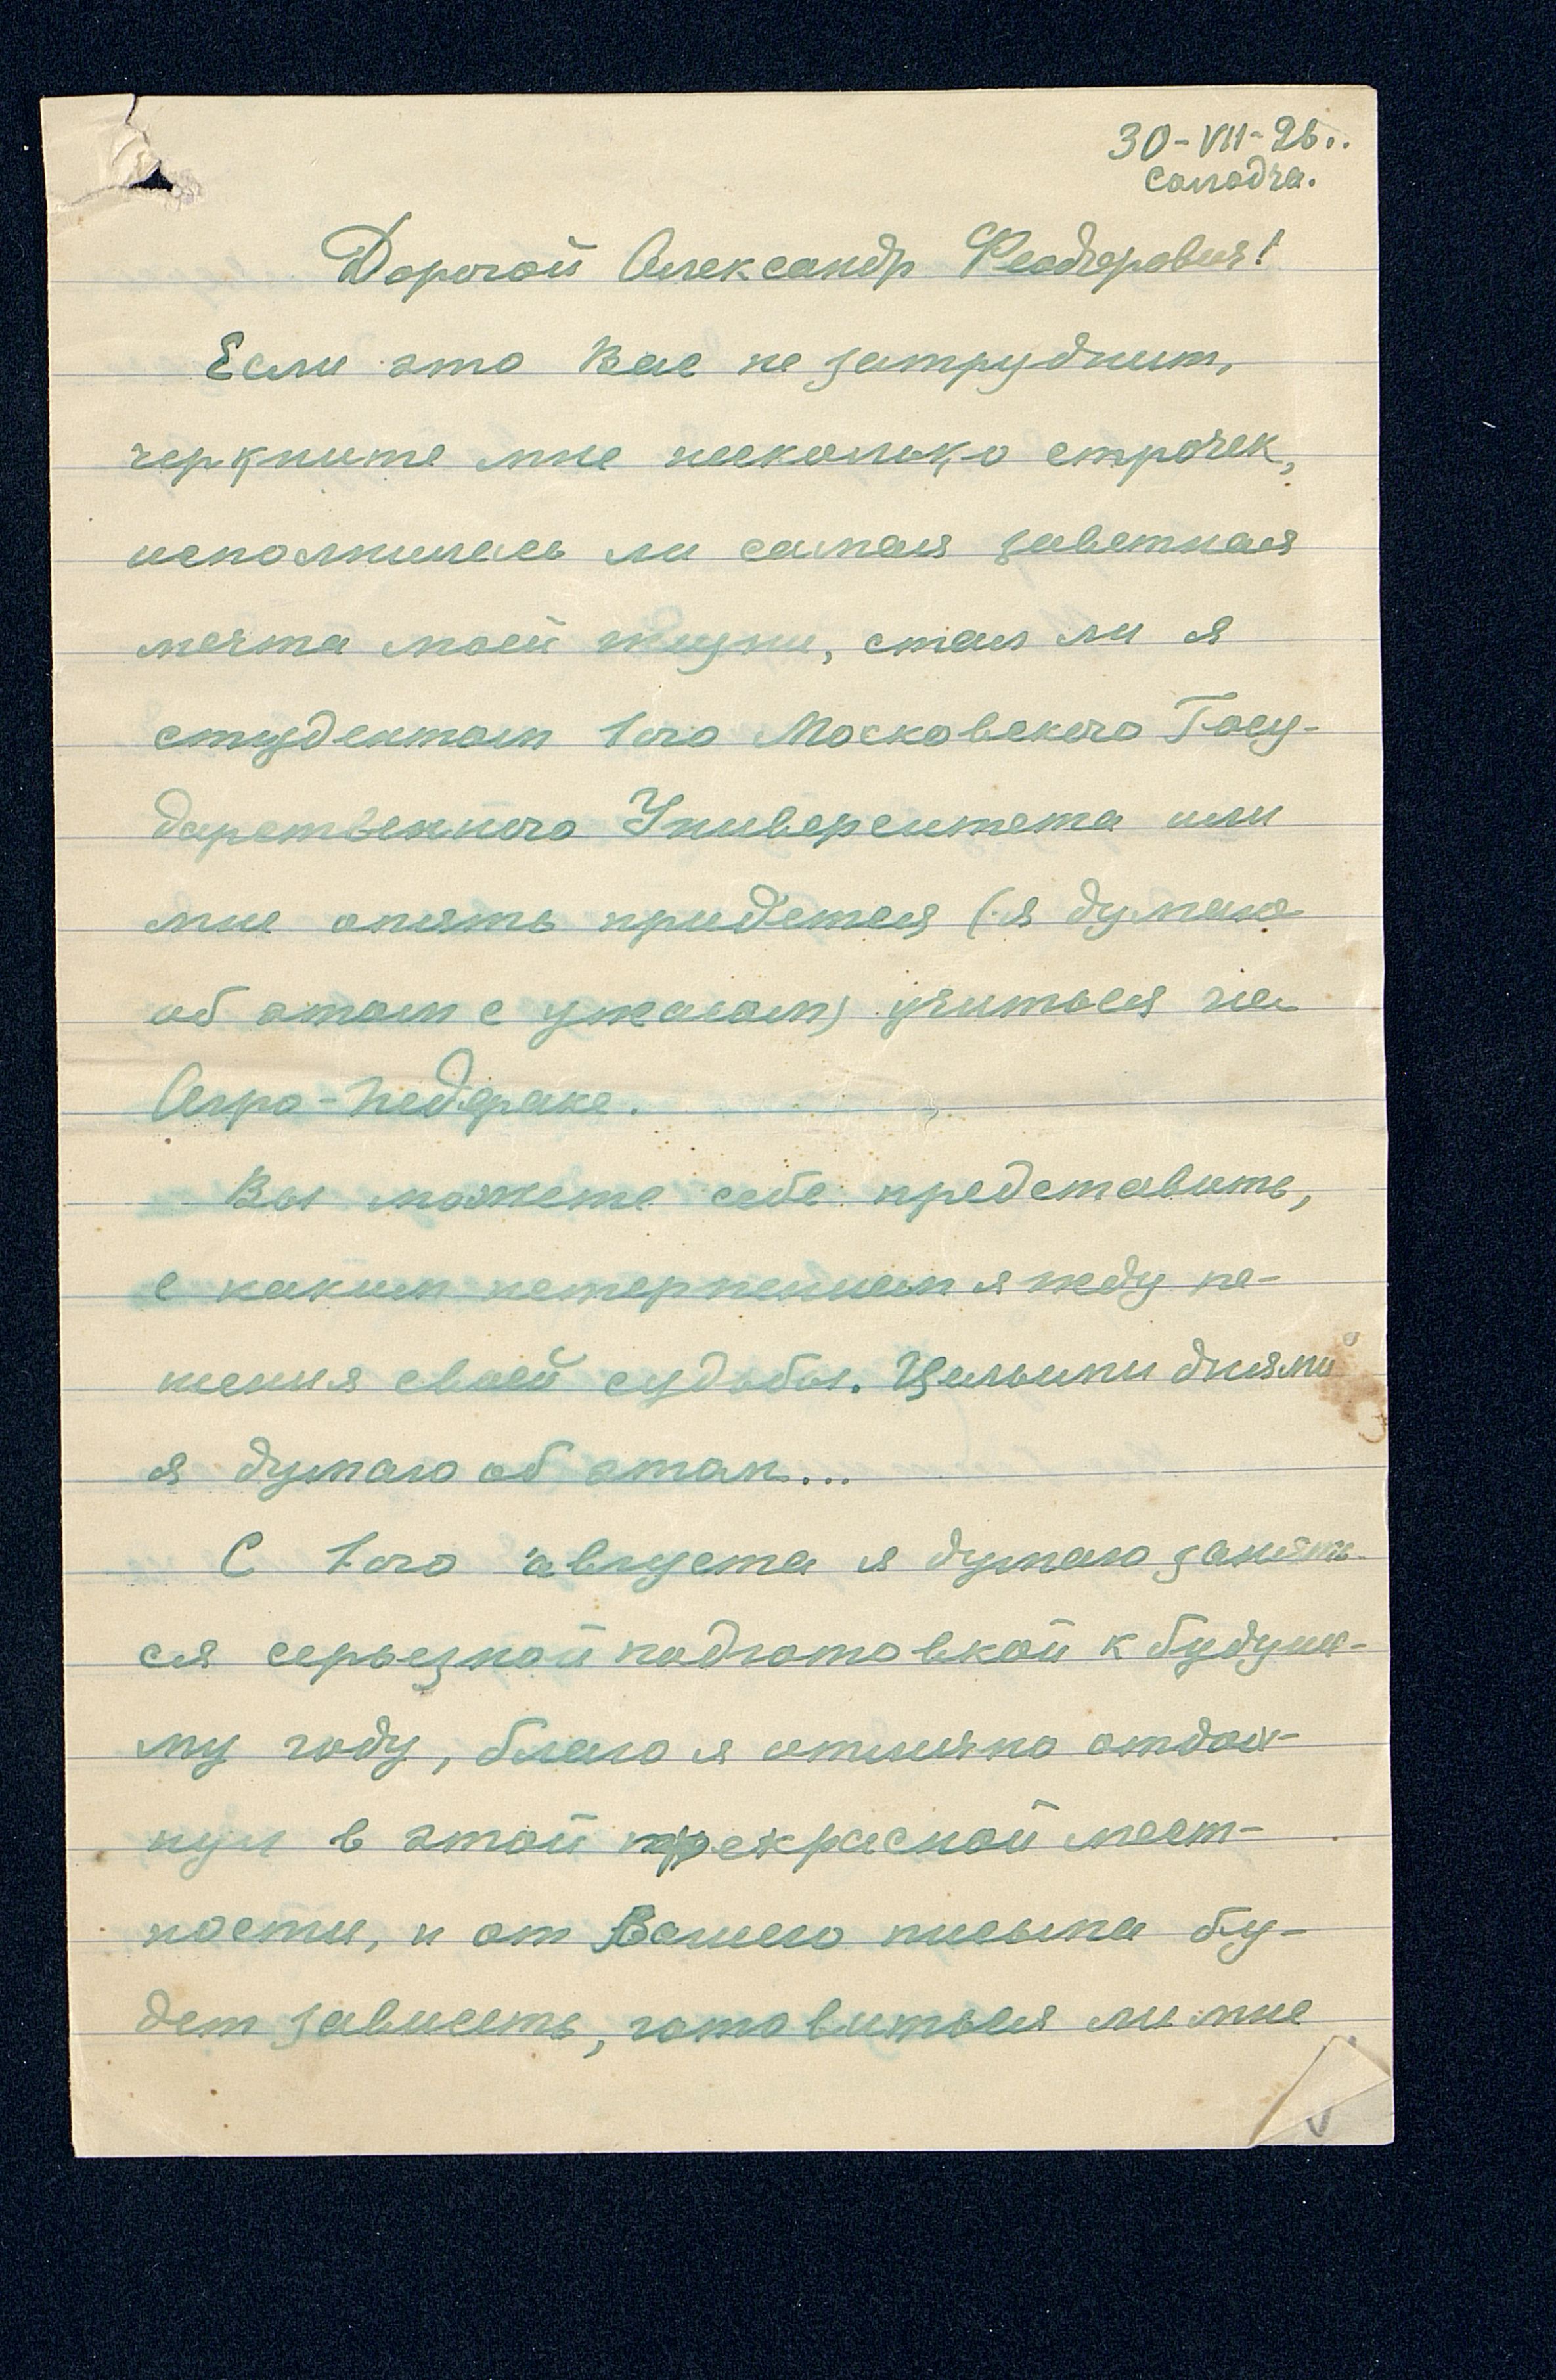 30-VII-26.
Солодча.
Дорогой Александр Феодорович!
Если это Вас не затруднит,
черкните мне несколько строчек,
исполнилась ли самая заветная
мечта моей жизни, стал ли я
студентом 1ого Московского Госу-
дарственного Университета или
мне опять придется (я думаю
об этом с ужасом) учиться на
Агро-Педфаке.
Вы можете себе представить,
с каким нетерпением я жду ре-
шения своей судьбы. Целыми днями
я думаю об этом...
С 1ого августа я думаю занять-
ся серьезной подготовкой к будуще-
му году, благо я отлично отдох-
нул в этой прекрасной мест-
ности, и от Вашего письма бу-
дет зависеть, готовиться ли мне